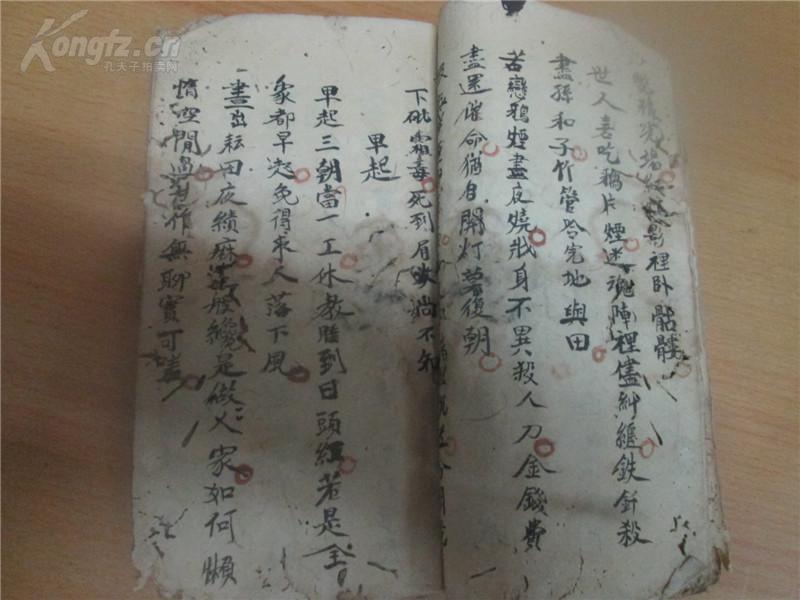 裡卧骷髏
世人喜吃鴉片煙迷魂陣裡儘糾纏鉄釺殺
盡孫和子竹管吹完地與田
苦戀鴉煙盡夜燒戕身不異殺人刀金錢費
盡還催命猶自開灯暮復朝
下砒霜毒死到眉尖尚不知
早起
早起三朝當一工休教睡到日頭紅若是全
家都早起免得求人落下風
晝出耘田夜績麻這般纔是做人家如何懶
惰空閒過無聊實可嗟
Kongfz.cn
孔夫子拍卖网